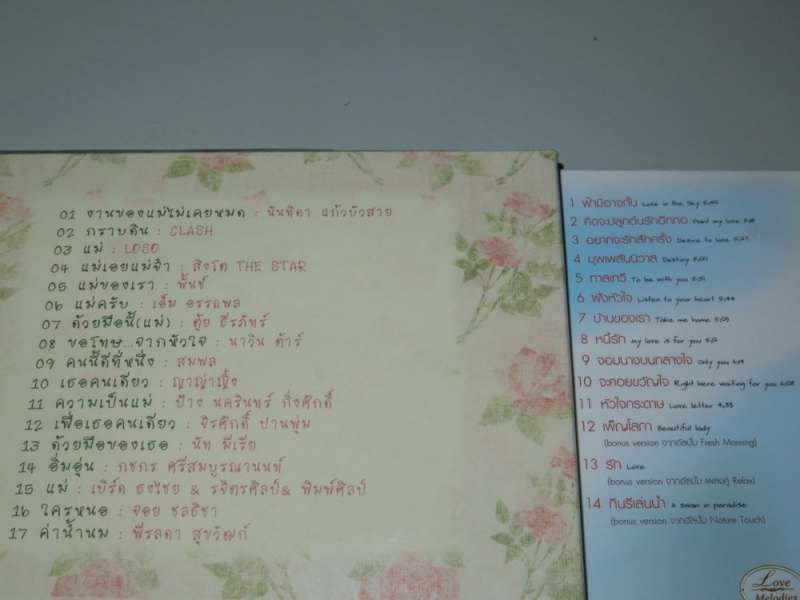 01 งานของแม่ไม่เคยหมด : นันทิดา แก้วบัวสาย
02 กราบดิน : CLASH
03 แม่ : LOSO
04 แม่เอยแม่จ๋า : สิงโต THE STAR
05 แม่ของเรา : พั้นช์
06 แม่ครับ : เอ็ม อรรถพล
07 ด้วยมือนี้(แม่) : ตุ้ย ธีรภัทร์
08 ขอโทษ...จากหัวใจ : นาวิน ต้าร์
09 คนนี้ดีที่หนึ่ง : สมพล
10 เธอคนเดียว : ญาญ่าญิ๋ง
11 ความเป็นแม่ : ป้าง นครินทร์ กิ่งศักดิ์
12 เพื่อเธอคนเดียว : จิรศักดิ์ ปานพุ่ม
13 ด้วยมือของเธอ : นัท มีเรีย
14 อิ่มอุ่น : กชกร ศรีสมบูรณานนท์
15 แม่ : เบิร์ด ธงไชย & รจิตรศิลป์& พิมพ์ศิลป์
16 ใครหนอ : จอย ชลธิชา
17 ค่าน้ำนม : พีรลดา สุขวัฒก์
1 ฟ้ามิอาจกั้น Love in the Sky
2 คิดจะปลูกต้นรักอีกกอ Plant my love
3 อยากจะรักสักครั้ง Desire to love
4 บุพเพสันนิวาส Destiny
5 ทาสเทวี To be with you
6 ฟังหัวใจ Listen to your heart 5:44
7 บ้านของเรา Take me home 5:03
8 หนี้รัก my love is for you
9 จอมนางบนกลางใจ Only you
10 จะคอยขวัญใจ Right here waiting for you
11 หัวใจกระดาษ Love letter 4:33
12 เพ็ญโสภา Beautiful lady
(bonus version จากอัลบั้ม Fresh Morning)
13 รัก Love
(bonus version จากอัลบั้ม เพลงคู่ Relax)
14 กินรีเล่นน้ำ A swan in paradise
(bonus version จากอัลบั้ม Nature Touch)
Love
Melodies